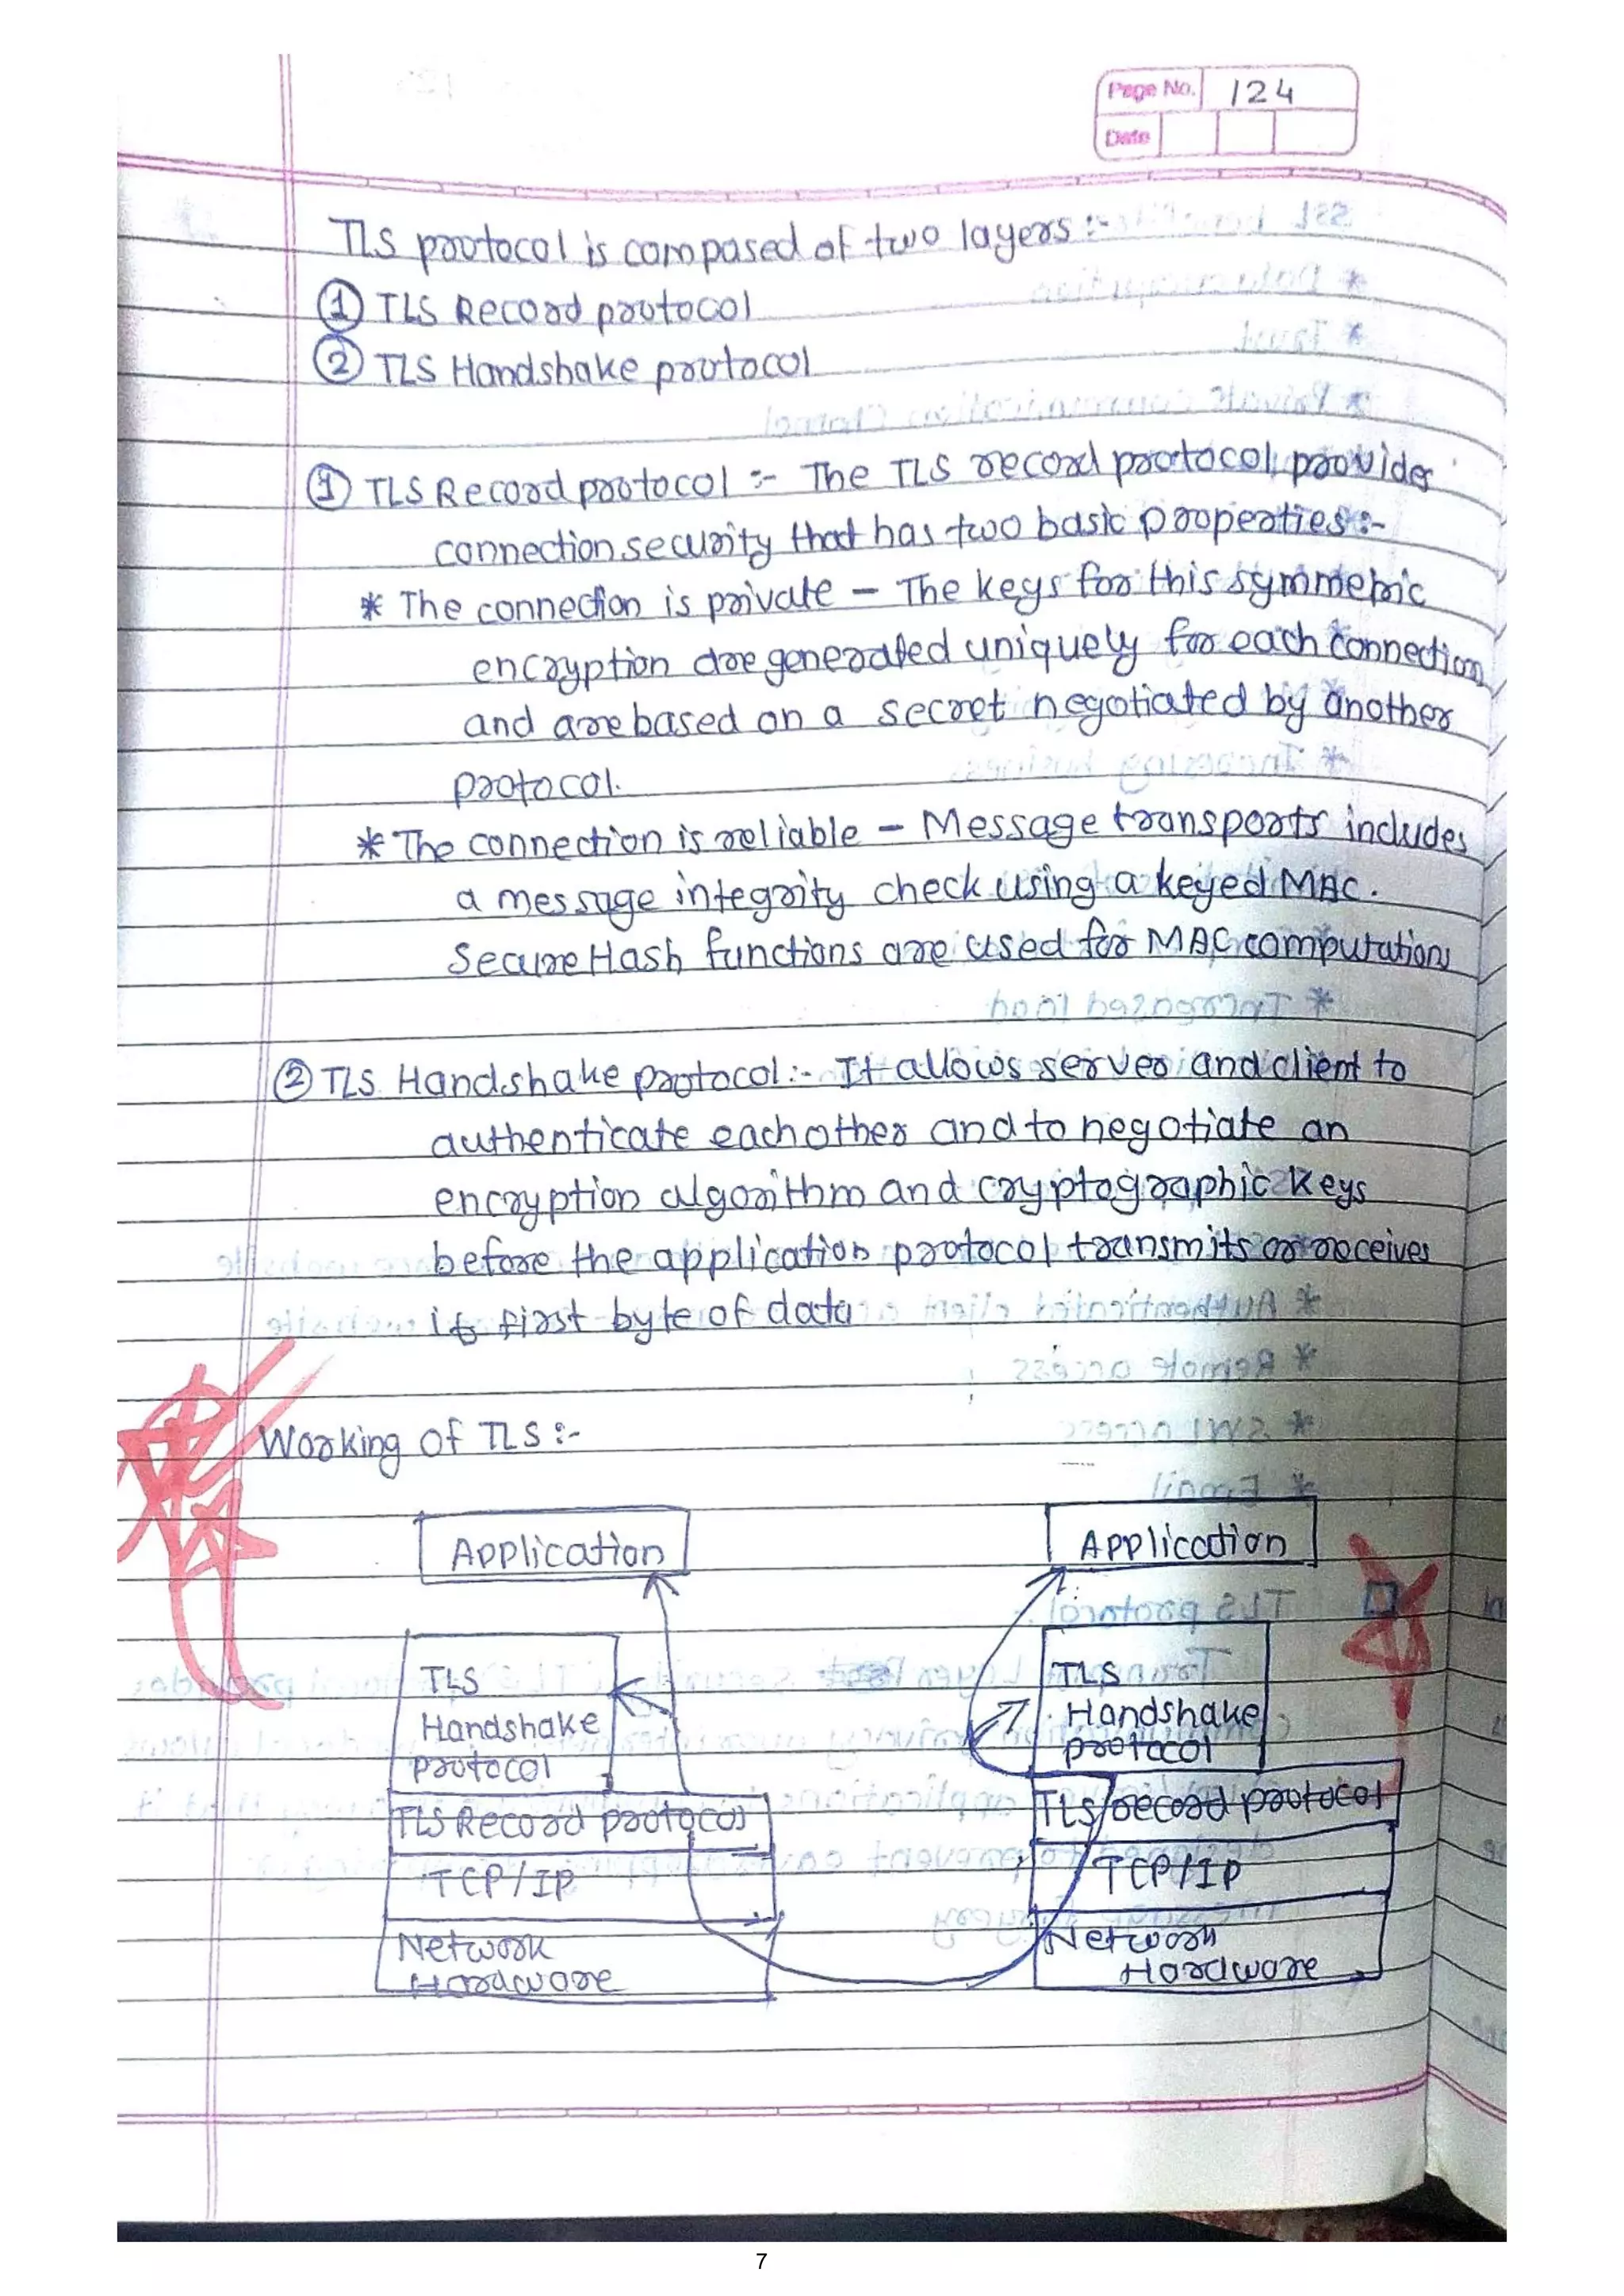 Page No. 124
Date
TLS protocol is composed of two layers :-
① TLS Record protocol
② TLS Handshake protocol
① TLS Record protocol :- The TLS record protocol provides
connection security that has two basic properties :-
* The connection is private - The keys for this symmetric
encryption are generated uniquely for each connection
and are based on a secret negotiated by another
protocol.
* The connection is reliable - Message transports includes
a message integrity check using a keyed MAC.
Secure Hash functions are used for MAC computations
② TLS Handshake protocol :- It allows server and client to
authenticate each other and to negotiate an
encryption algorithm and cryptographic keys
before the application protocol transmits or receives
its first byte of data
Working of TLS :-
Application
Application
TLS
Handshake
protocol
TLS Record protocol
TCP/IP
Network
Hardware
TLS
Handshake
protocol
TLS record protocol
TCP/IP
Network
Hardware
7